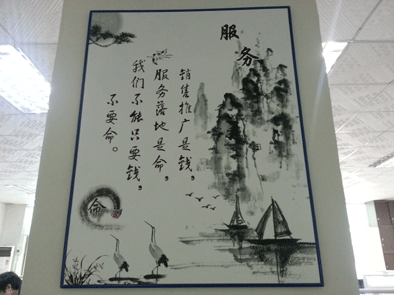 服务
销售推广是钱，
服务落地是命，
我们不能只要钱，
不要命。
命